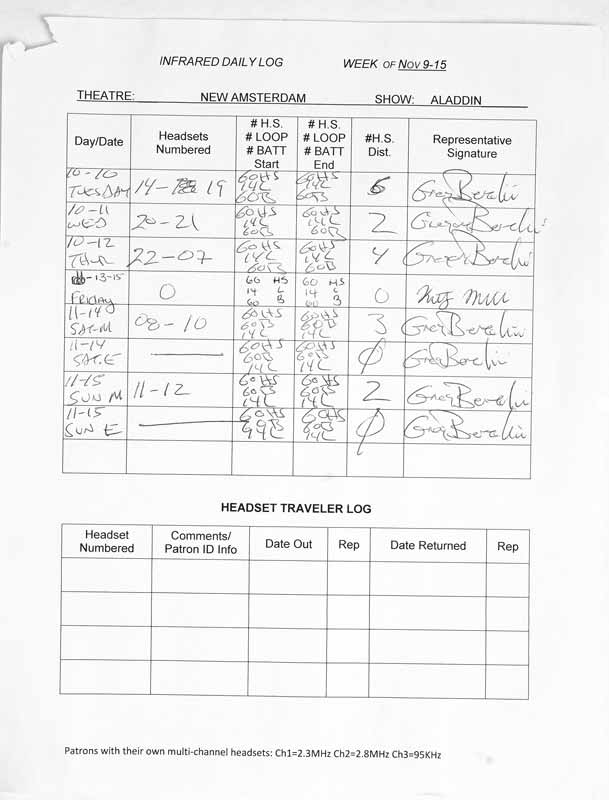 INFRARED DAILY LOG WEEK OF NOV 9-15
THEATRE: NEW AMSTERDAM SHOW: ALADDIN
Day/Date Headsets Numbered # H.S. # LOOP # BATT Start # H.S. # LOOP # BATT End #H.S. Dist. Representative Signature
10-10 TUESDAY 14- 19 60HS 14L 60B 60HS 14L 60B Greg
10-11 WED 20-21 60HS 14L 60B 60HS 14L 60B 2
10-12 THUR 22-07 60HS 14L 60B 60HS 14L 60B 4 Greg
-13-15 FRIDAY 0 60 HS 14 L 60 B 60 HS 14 L 60 B 0
11-14 SAT-M 08-10 60HS 60B 14L 60HS 60B 14L 3 Greg
11-14 SAT.E 60HS 60B 14L 60HS 60B 14L 0 Greg
11-15 SUN M 11-12 60HS 60B 14L 60HS 60B 14L 2 Greg
11-15 SUN E 60HS 60B 60HS 60B 14L 0 Greg
HEADSET TRAVELER LOG
Headset Numbered Comments/ Patron ID Info Date Out Rep Date Returned Rep
Patrons with their own multi-channel headsets: Ch1=2.3MHz Ch2=2.8MHz Ch3=95KHz